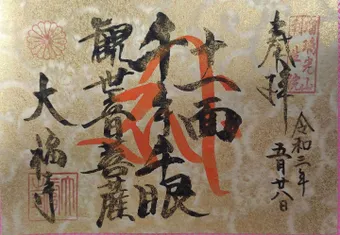 奉拝
令和三年
五月廿八日
十一面
千手千眼
観世音菩薩
大福寺